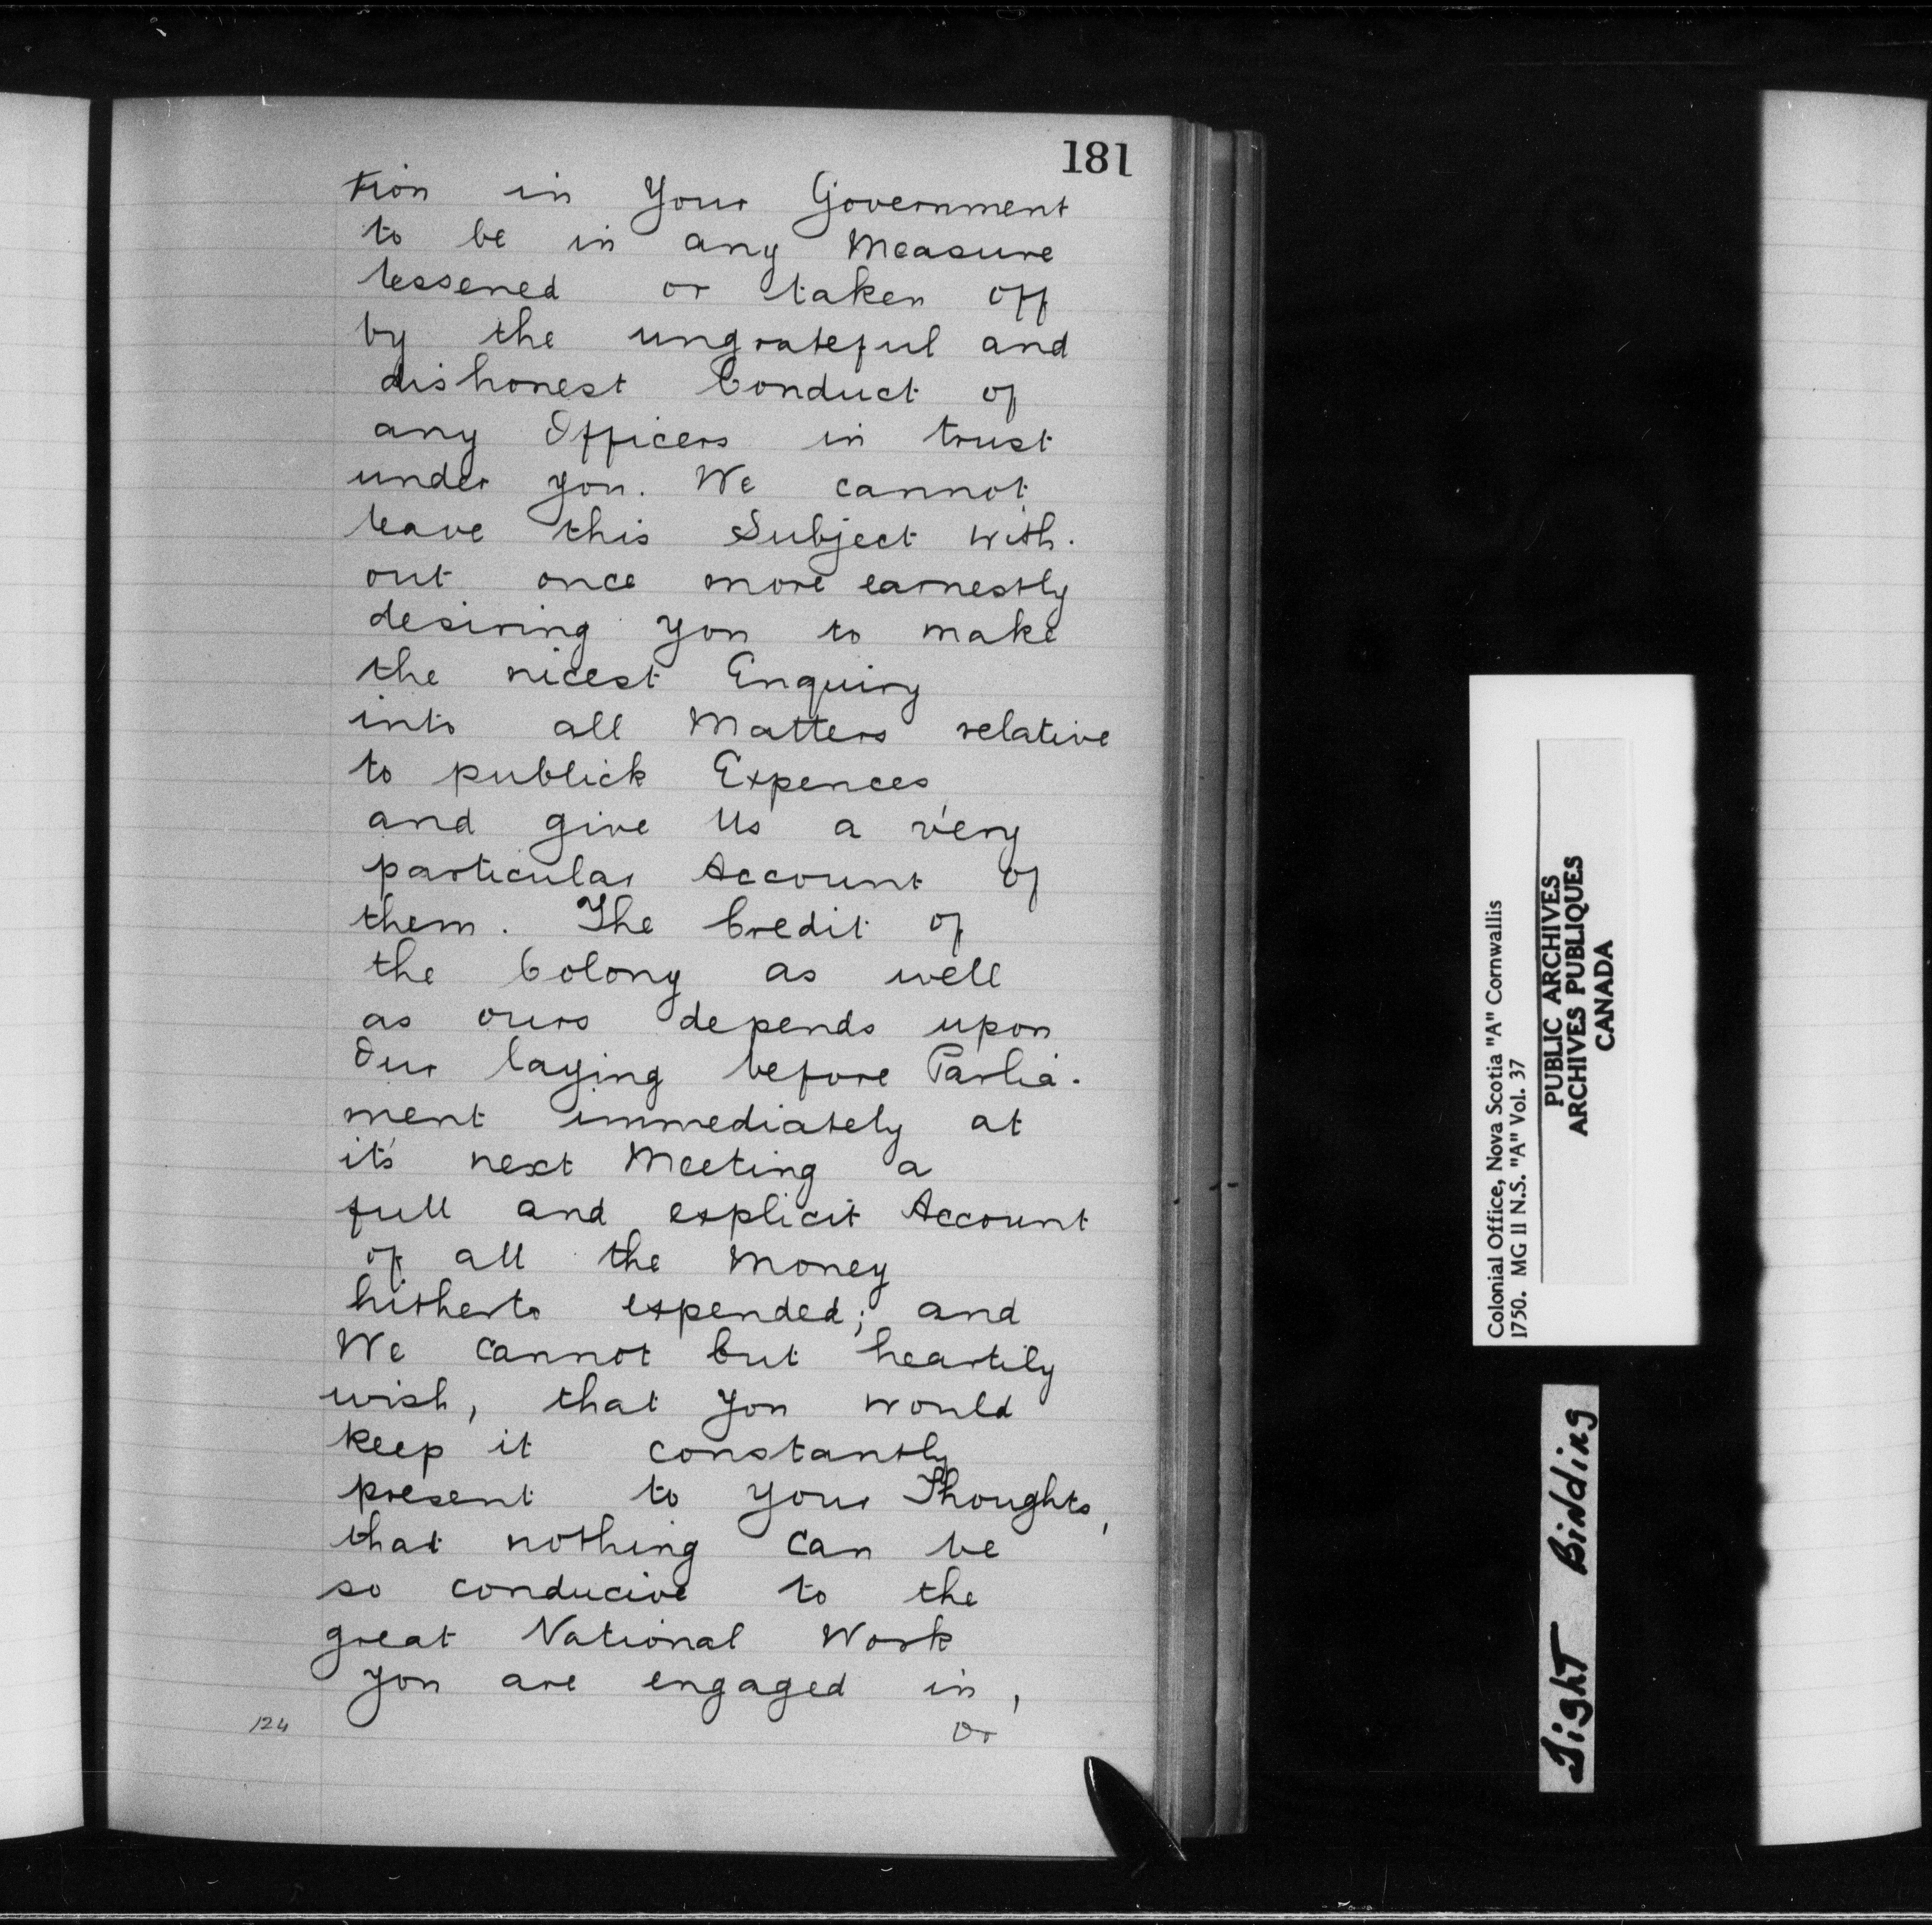 181
tion in Your Government
to be in any Measure
lessened or taken off
by the ungrateful and
dishonest Conduct of
any Officers in trust
under you. We cannot
leave this Subject with-
out once more earnestly
desiring you to make
the nicest Enquiry
into all Matters relative
to publick Expences
and give Us a very
particular Account of
them. The Credit of
the Colony as well
as ours depends upon
Our laying before Parlia-
ment immediately at
it's next Meeting a
full and explicit Account
of all the Money
hitherto expended; and
We cannot but heartily
wish, that you would
keep it constantly
present to your Thoughts,
that nothing can be
so conducive to the
great National Work
you are engaged in,
or
124
Colonial Office, Nova Scotia "A" Cornwallis
1750. MG 11 N.S. "A" Vol. 37
PUBLIC ARCHIVES
ARCHIVES PUBLIQUES
CANADA
Tight Binding